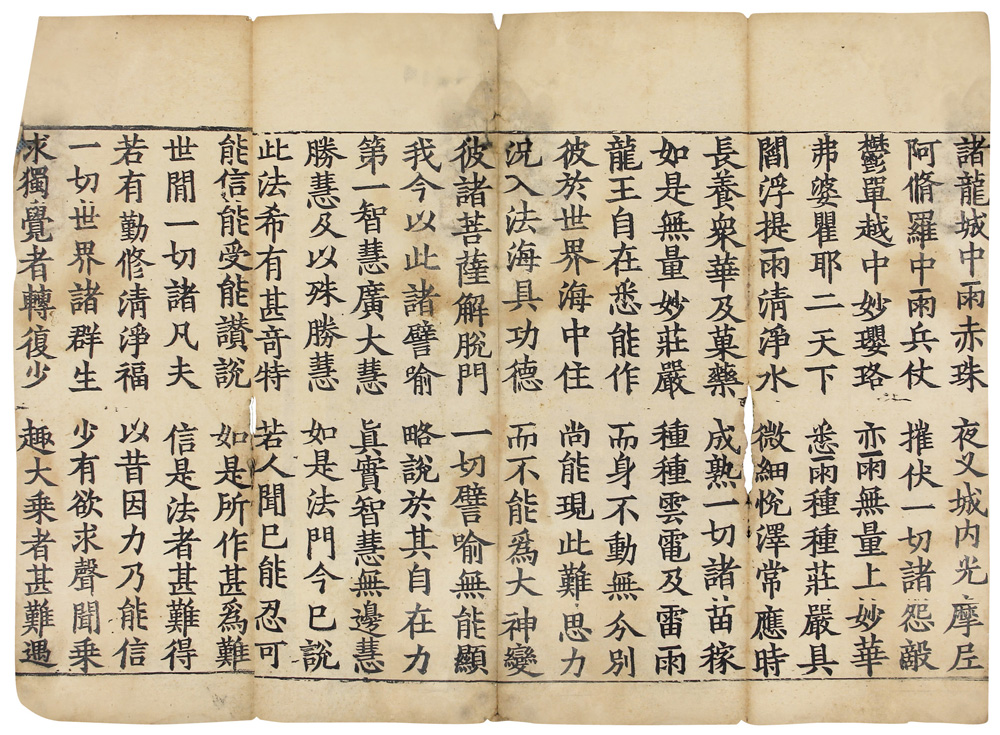 諸龍城中雨赤珠　夜叉城内光摩尼
阿脩羅中雨兵仗　摧伏一切諸怨敵
鬱單越中妙瓔珞　亦雨無量上妙華
弗婆瞿耶二天下　悉雨種種莊嚴具
閻浮提雨清淨水　微細悅澤常應時
長養衆華及菓藥　成熟一切諸苗稼
如是無量妙莊嚴　種種雲電及雷雨
龍王自在悉能作　而身不動無分別
彼於世界海中住　尚能現此難思力
況入法海具功德　而不能爲大神變
彼諸菩薩解脫門　一切譬喻無能顯
我今以此諸譬喻　略說於其自在力
第一智慧廣大慧　眞實智慧無邊慧
勝慧及以殊勝慧　如是法門今已說
此法希有甚竒特　若人聞已能忍可
能信能受能讚說　如是所作甚爲難
世間一切諸凡夫　信是法者甚難得
若有勤修清淨福　以昔因力乃能信
一切世界諸群生　少有欲求聲聞乘
求獨覺者轉復少　趣大乘者甚難遇